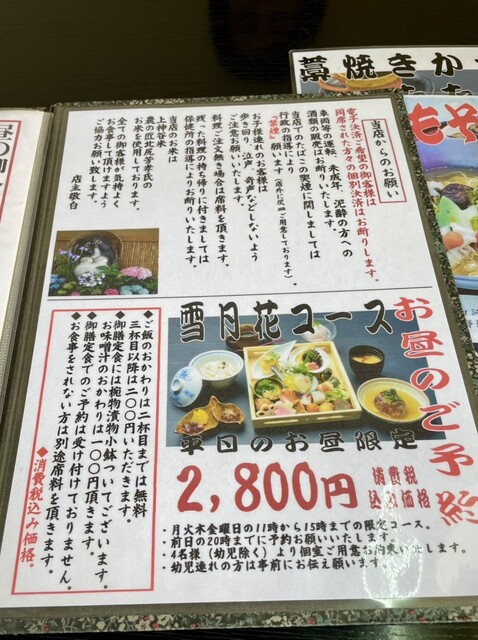 当店からのお願い
電子決済ご希望の御客様は
同席された方々の個別決済はお断りします。
車両等の運転、未成年、泥酔の方への
酒類の販売はお断りいたします。
当店でのたばこの喫煙に関しましては
行政の指導により
"禁煙"願います。(店外に灰皿ご用意しております)
お子様連れのお客様は
歩き回り、泣声、奇声などしないよう
ご注意お願いいたします。
料理ご注文無き場合は席料を頂きます。
残った料理の持ち帰りに付きましては
保健所の指導によりお断りいたします。
当店のお米は
上神谷米
農の匠北尻芳孝氏の
お米を使用しております。
全ての御客様が気持よく
お食事して頂けますよう
ご協力お願い致します。
店主敬白
お昼のご予約
雪月花コース
平日のお昼限定
2,800円
消費税
込み価格
・月火木金曜日の11時から15時までの限定コース。
・前日の20時までに予約お願いいたします。
・4名様(幼児除く)より個室ご用意お約束いたします。
・幼児連れの方は事前にお伝え願います。
◆ご飯のおかわりは二杯目までは無料
三杯目以降は二〇〇円いただきます。
お味噌汁のおかわりは一〇〇円頂きます。
◆御膳定食には椀物漬物小鉢ついてございます。
◆御膳定食でのご予約は受け付けておりません。
◆お食事をされない方は別途席料を頂きます。
◆消費税込み価格。
藁焼きか